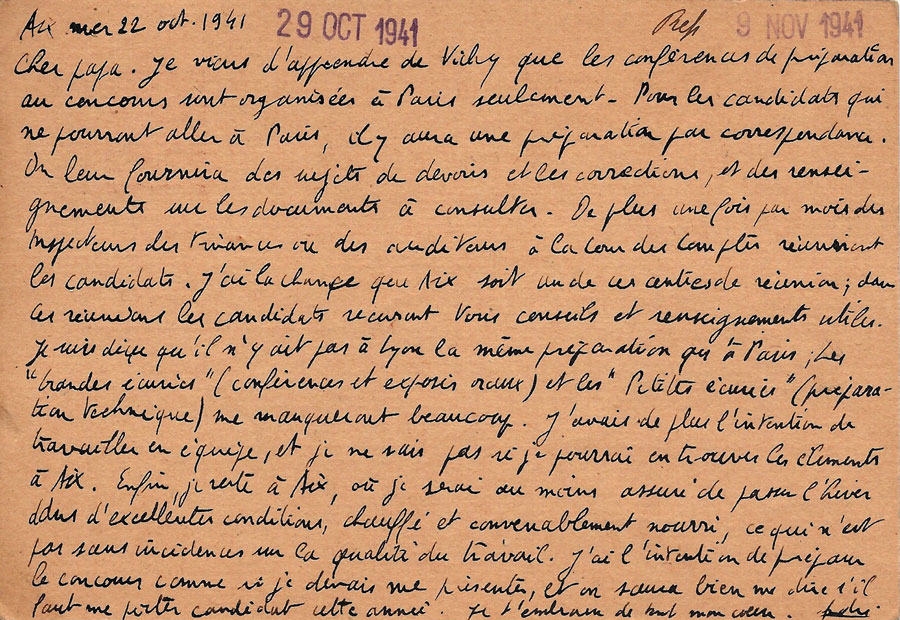 Aix mer 22 oct. 1941 29 OCT 1941 Rep 9 NOV 1941
Cher papa. Je viens d'apprendre de Vichy que les conférences de préparation
au concours sont organisées à Paris seulement - Pour les candidats qui
ne pourront aller à Paris, il y aura une préparation par correspondance.
On leur fournira des sujets de devoirs et les corrections, et des rensei-
gnements sur les documents à consulter. De plus une fois par mois des
Inspecteurs des Finances ou des auditeurs à la Cour des Comptes réuniront
les candidats. J'ai la chance que Aix soit un de ces centres de réunion ; dans
ces réunions les candidats recevront tous conseils et renseignements utiles.
Je suis déçu qu'il n'y ait pas à Lyon la même préparation qu'à Paris ; Les
"Grandes écuries" (conférences et exposés oraux) et les "Petites écuries" (prépara-
tion technique) me manqueront beaucoup. J'avais de plus l'intention de
travailler en équipe, et je ne sais pas si je pourrai en trouver les éléments
à Aix. Enfin, je reste à Aix, où je serai au moins assuré de passer l'hiver
dans d'excellentes conditions, chauffé et convenablement nourri, ce qui n'est
pas sans incidences sur la qualité du travail. J'ai l'intention de préparer
le concours comme si je devais me présenter, et on saura bien me dire s'il
faut me porter candidat cette année. Je t'embrasse de tout mon coeur.